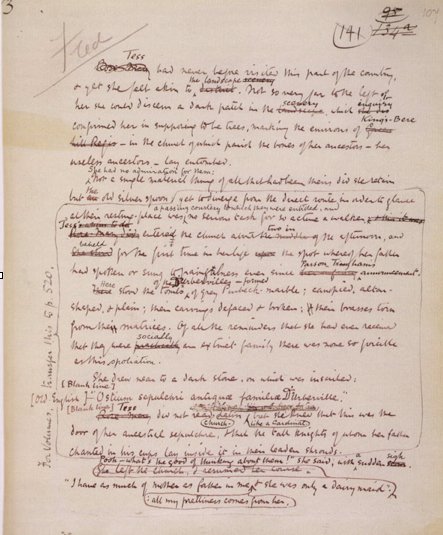 Fred
141
Tess
had never before visited this part of the country,
& yet she felt akin to the landscape. Not so very far to the left of
her she could discern a dark patch in the scenery, which enquiry
confirmed her in supposing to be trees, marking the environs of King's-Bere
— in the church of which parish the bones of her ancestors — her
useless ancestors — lay entombed.
She had no admiration for them;
Not a single material thing of all that had been theirs did she retain
but the old silver spoon;
at their resting-place was no serious cause for so active a walker
entered the church about the middle of the afternoon, and
beheld for the first time in her life the spot whereof her father
had spoken or sung to painfulness ever since Parson Tringham's announcement.
Here stood the tombs of the D'Urbervilles — formed of grey Purbeck-marble; canopied, altar-
shaped, & plain; their carvings defaced & broken; their brasses torn
from their matrices. Of all the reminders that she had ever received
that they were socially an extinct family there was none so forcible
as this spoliation.
She drew near to a dark stone, on which was inscribed:
[Blank line]
[Old English] "Ostium sepulchri antiquae familiae D'Urberville."
[Blank line] Tess did not read Church-Latin like a Cardinal, but she knew that this was the
door of her ancestral sepulchre, & that the tall knights of whom her father
chanted in his cups lay inside it in their leaden shrouds.
"Pooh — what's the good of thinking about them!" she said, with a sudden sigh.
"I have as much of mother as father in me,
all my prettiness comes from her,
& she was only a dairymaid."
For Volumes, transfer this to p. 520.